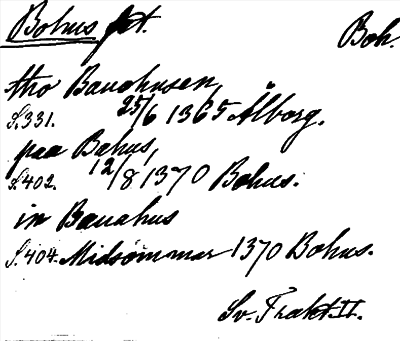 Bohus fst. Boh.
tho Bauohusen,
S. 331. 25/6 1365 Ålborg.
paa Bahus,
S. 402. 12/8 1370 Bohus.
in Bauahus
S. 404. Midsommar 1370 Bohus.
Sv. Trakt. II.